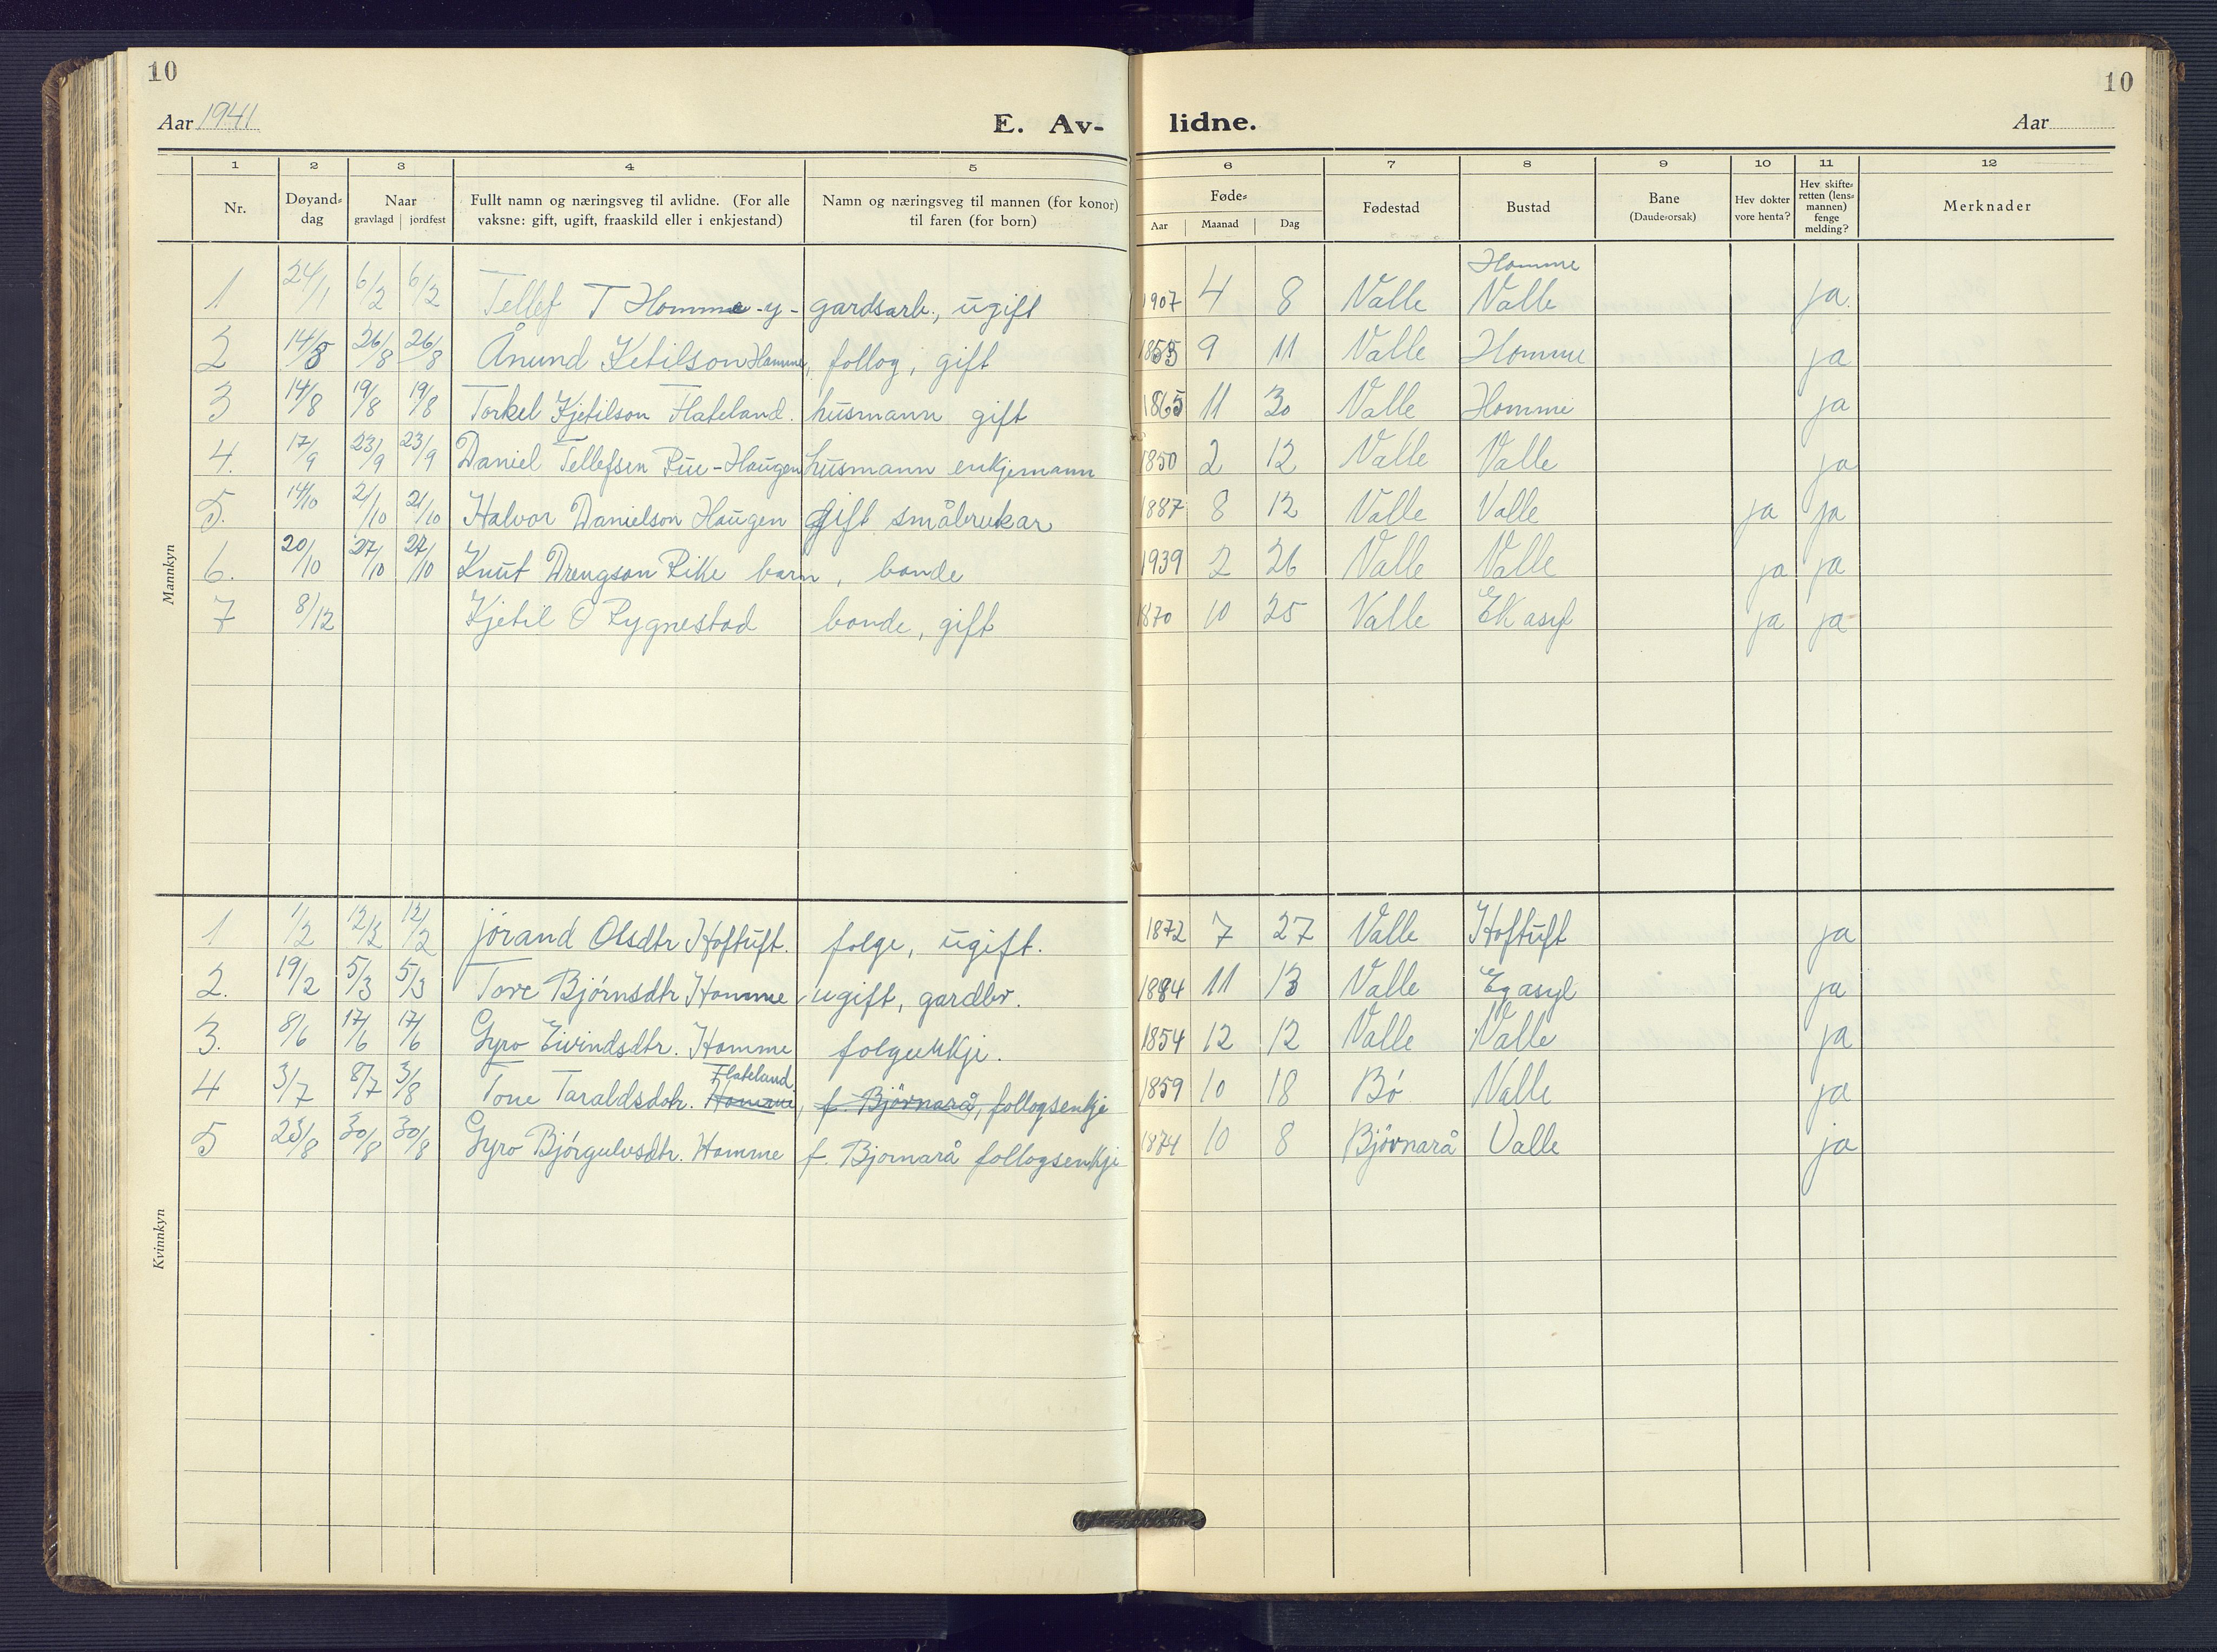 10
10
Aar 1941 E. Av- lidne. Aar
1 2 3 4 5 6 7 8 9 10 11 12
Nr. Døyand-dag Naar gravlagd jordfest Fullt namn og næringsveg til avlidne. (For alle vaksne: gift, ugift, fraaskild eller i enkjestand) Namn og næringsveg til mannen (for konor) til faren (for born) Føde- Aar Maanad Dag Fødestad Bustad Bane (Daude-orsak) Hev dokter vore henta? Hev skifte-retten (lens-mannen) fenge melding? Merknader
Mannkyn
1 24/1 6/2 6/2 Tellef T Homme -y- gardsarb., ugift 1907 4 8 Valle Homme Valle ja.
2 14/8 26/8 26/8 Ånund Ketilson Homme, follog, gift 1855 9 11 Valle Homme ja
3 14/8 19/8 19/8 Torkel Kjetilson Flateland. husmann gift 1865 11 30 Valle Homme ja
4. 17/9 23/9 23/9 Daniel Tellefsen Rue-Haugen husmann enkjemann 1850 2 12 Valle Valle ja
5. 14/10 21/10 21/10 Halvor Danielson Haugen Gift småbrukar 1887 8 12 Valle Valle ja ja
6. 20/10 27/10 27/10 Knut Drengson Rike barn, bonde 1939 2 26 Valle Valle ja ja
7 8/12 Kjetil O Rygnestad bonde, gift 1870 10 25 Valle Ek asyl ja ja
Kvinnkyn
1 1/2 12/2 12/2 Jórand Olsdtr Hoftuft. folge, ugift. 1872 7 27 Valle Hoftuft ja
2. 19/2 5/3 5/3 Tore Bjórnsdtr Homme, ugift, gardbr. 1884 11 13 Valle Eg asyl ja
3. 8/6 17/6 17/6 Gyro Eivindsdtr. Homme folgeenkje. 1854 12 12 Valle Valle ja
4 3/7 8/7 3/8 Tone Taraldsdotr. Homme, Flateland f. Björnarå, follogsenkje 1859 10 18 Bó Valle ja
5 23/8 30/8 30/8 Gyro Bjórgulvsdtr. Homme f. Bjornarå follogsenkje 1874 10 8 Björnarå Valle ja